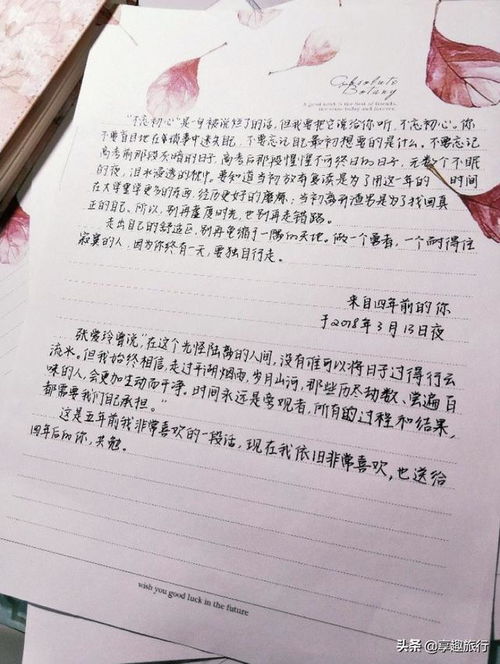 Absolute
Botany
A good book is the best of friends,
the same today and forever.
"不忘初心"是一句被说烂了的话,但我要把它说给你听,不忘初心。你
不要盲目地在琐事中迷失自己,不要忘记自己最初想要的是什么。不要忘记
高考前那段灰暗的日子,高考后那段惶惶不可终日的日子,无数个不眠
的夜,泪水浸透的枕巾。要知道当初放弃复读是为了用这一年的 时间
在大学里学更多的东西,经历更好的磨炼;当初离开道县是为了找回真
正的自己。所以,别再虚度时光,也别再走错路。
走出自己的舒适区,别再龟缩于一隅的天地。做一个勇者,一个耐得住
寂寞的人,因为你终有一天,要独自行走。
来自四年前的你
于2018年3月13日夜
张爱玲曾说,"在这个光怪陆离的人间,没有谁可以将日子过得行云
流水。但我始终相信,走过平湖烟雨,岁月山河,那些历尽劫数、尝遍百
味的人,会更加生动而干净。时间永远是旁观者,所有的过程和结果,
都需要我们自己承担。"
这是五年前我非常喜欢的一段话,现在我依旧非常喜欢,也送给
四年后的你,共勉。
wish you good luck in the future
头条 @享趣旅行